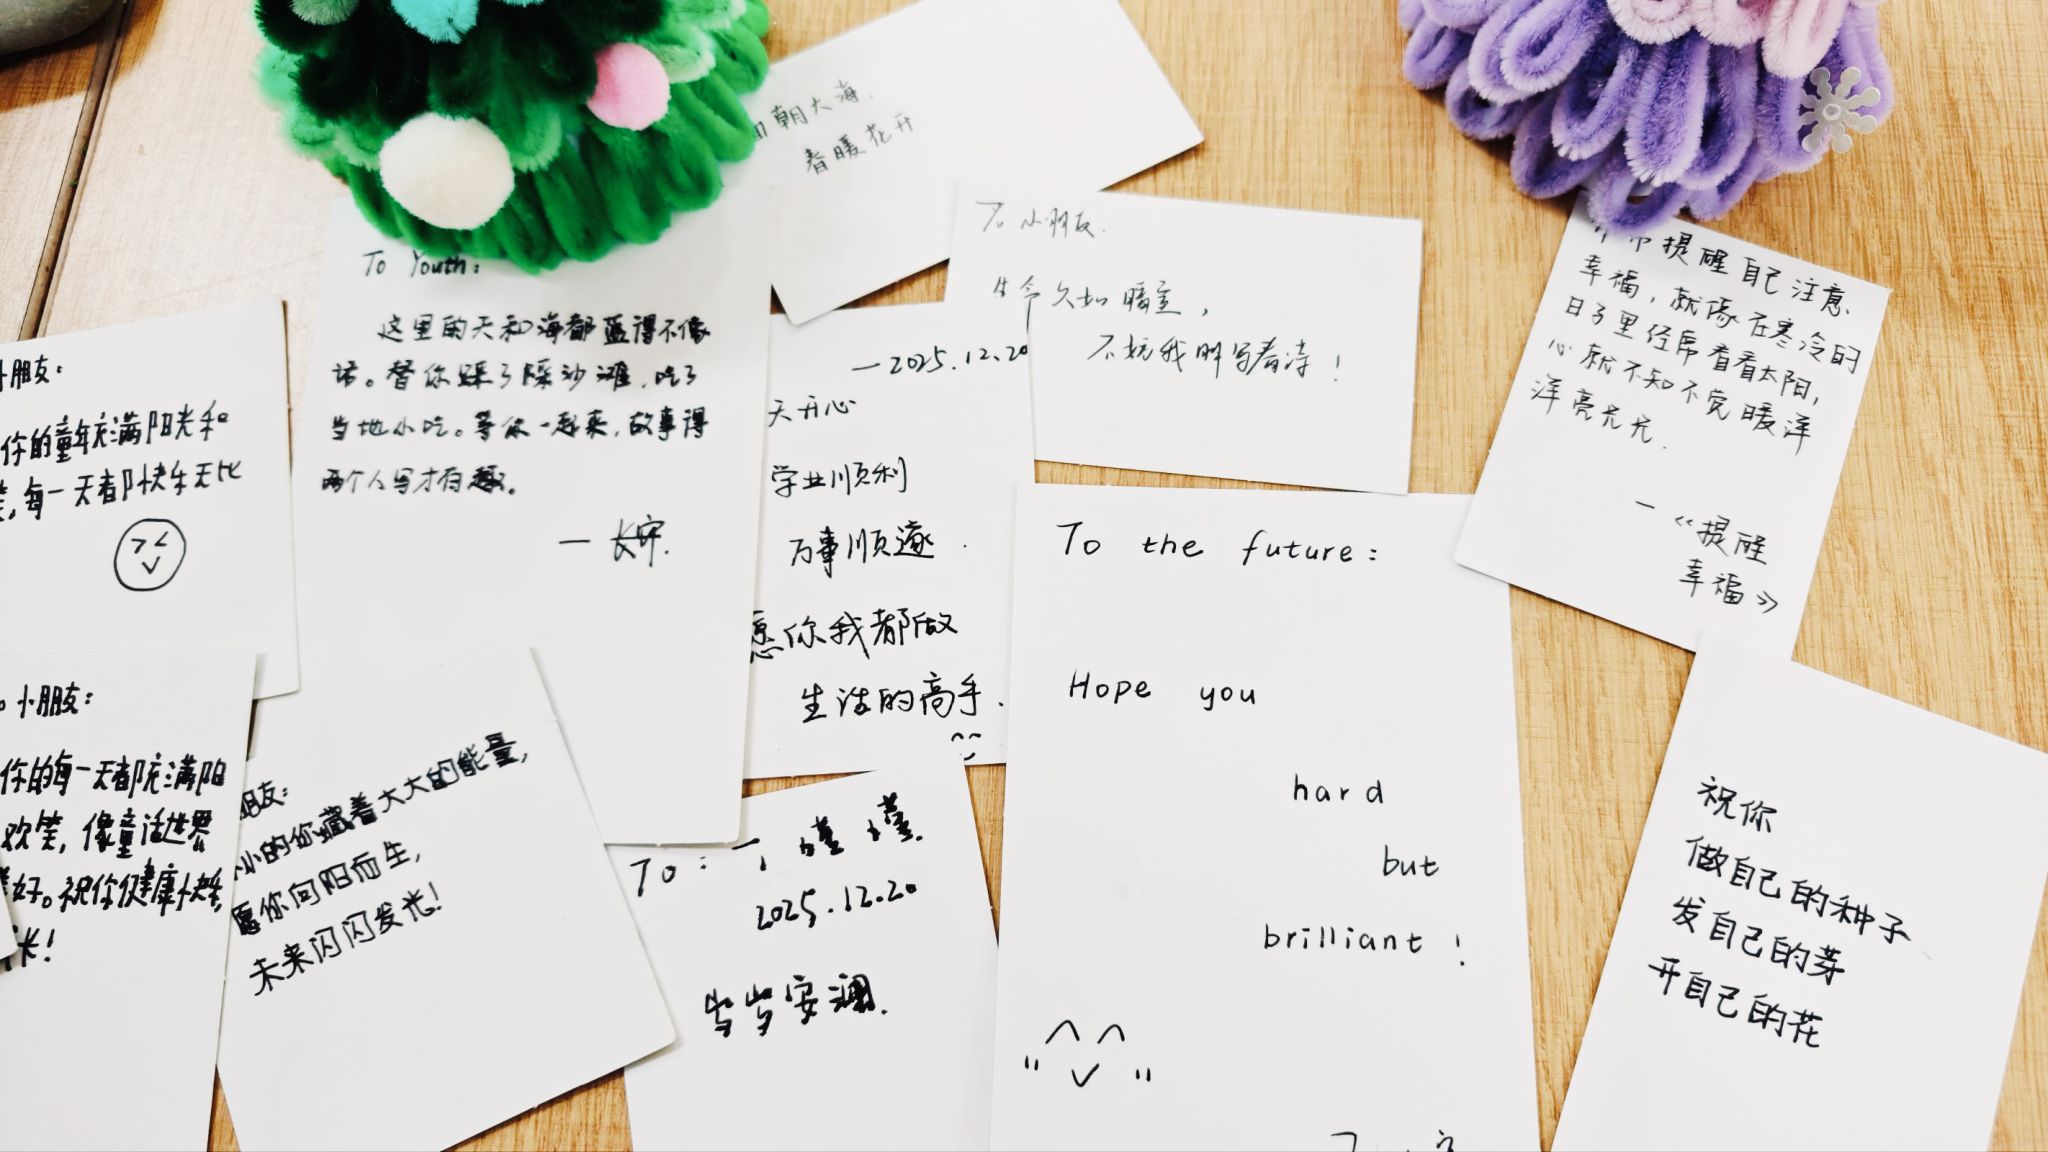 朝大海,
春暖花开
To 小朋友.
生命久如暖
不妨我们写着诗!
提醒自己注意
幸福,就像在寒冷的
日子里经常看看太阳,
心就不知不觉暖洋
洋亮光光.
—《提醒
幸福》
To Youth:
这里的天和海都蓝得不像
话。替你踩了踩沙滩,吃了
当地小吃。等你一起来,故事得
两个人写才有趣。
— 长安.
—2025.12.20
天开心
学业顺利
万事顺遂.
愿你我都做
生活的高手.
小朋友:
你的童年充满阳光和
笑,每一天都快乐无比
小朋友:
你的每一天都充满阳
欢笑,像童话世界
美好。祝你健康快乐,
长!
朋友:
小的你藏着大大的能量,
愿你向阳而生,
未来闪闪发光!
To: 瑾瑾.
2025.12.20
岁岁安澜.
To the future:
Hope you
hard
but
brilliant!
祝你
做自己的种子
发自己的芽
开自己的花